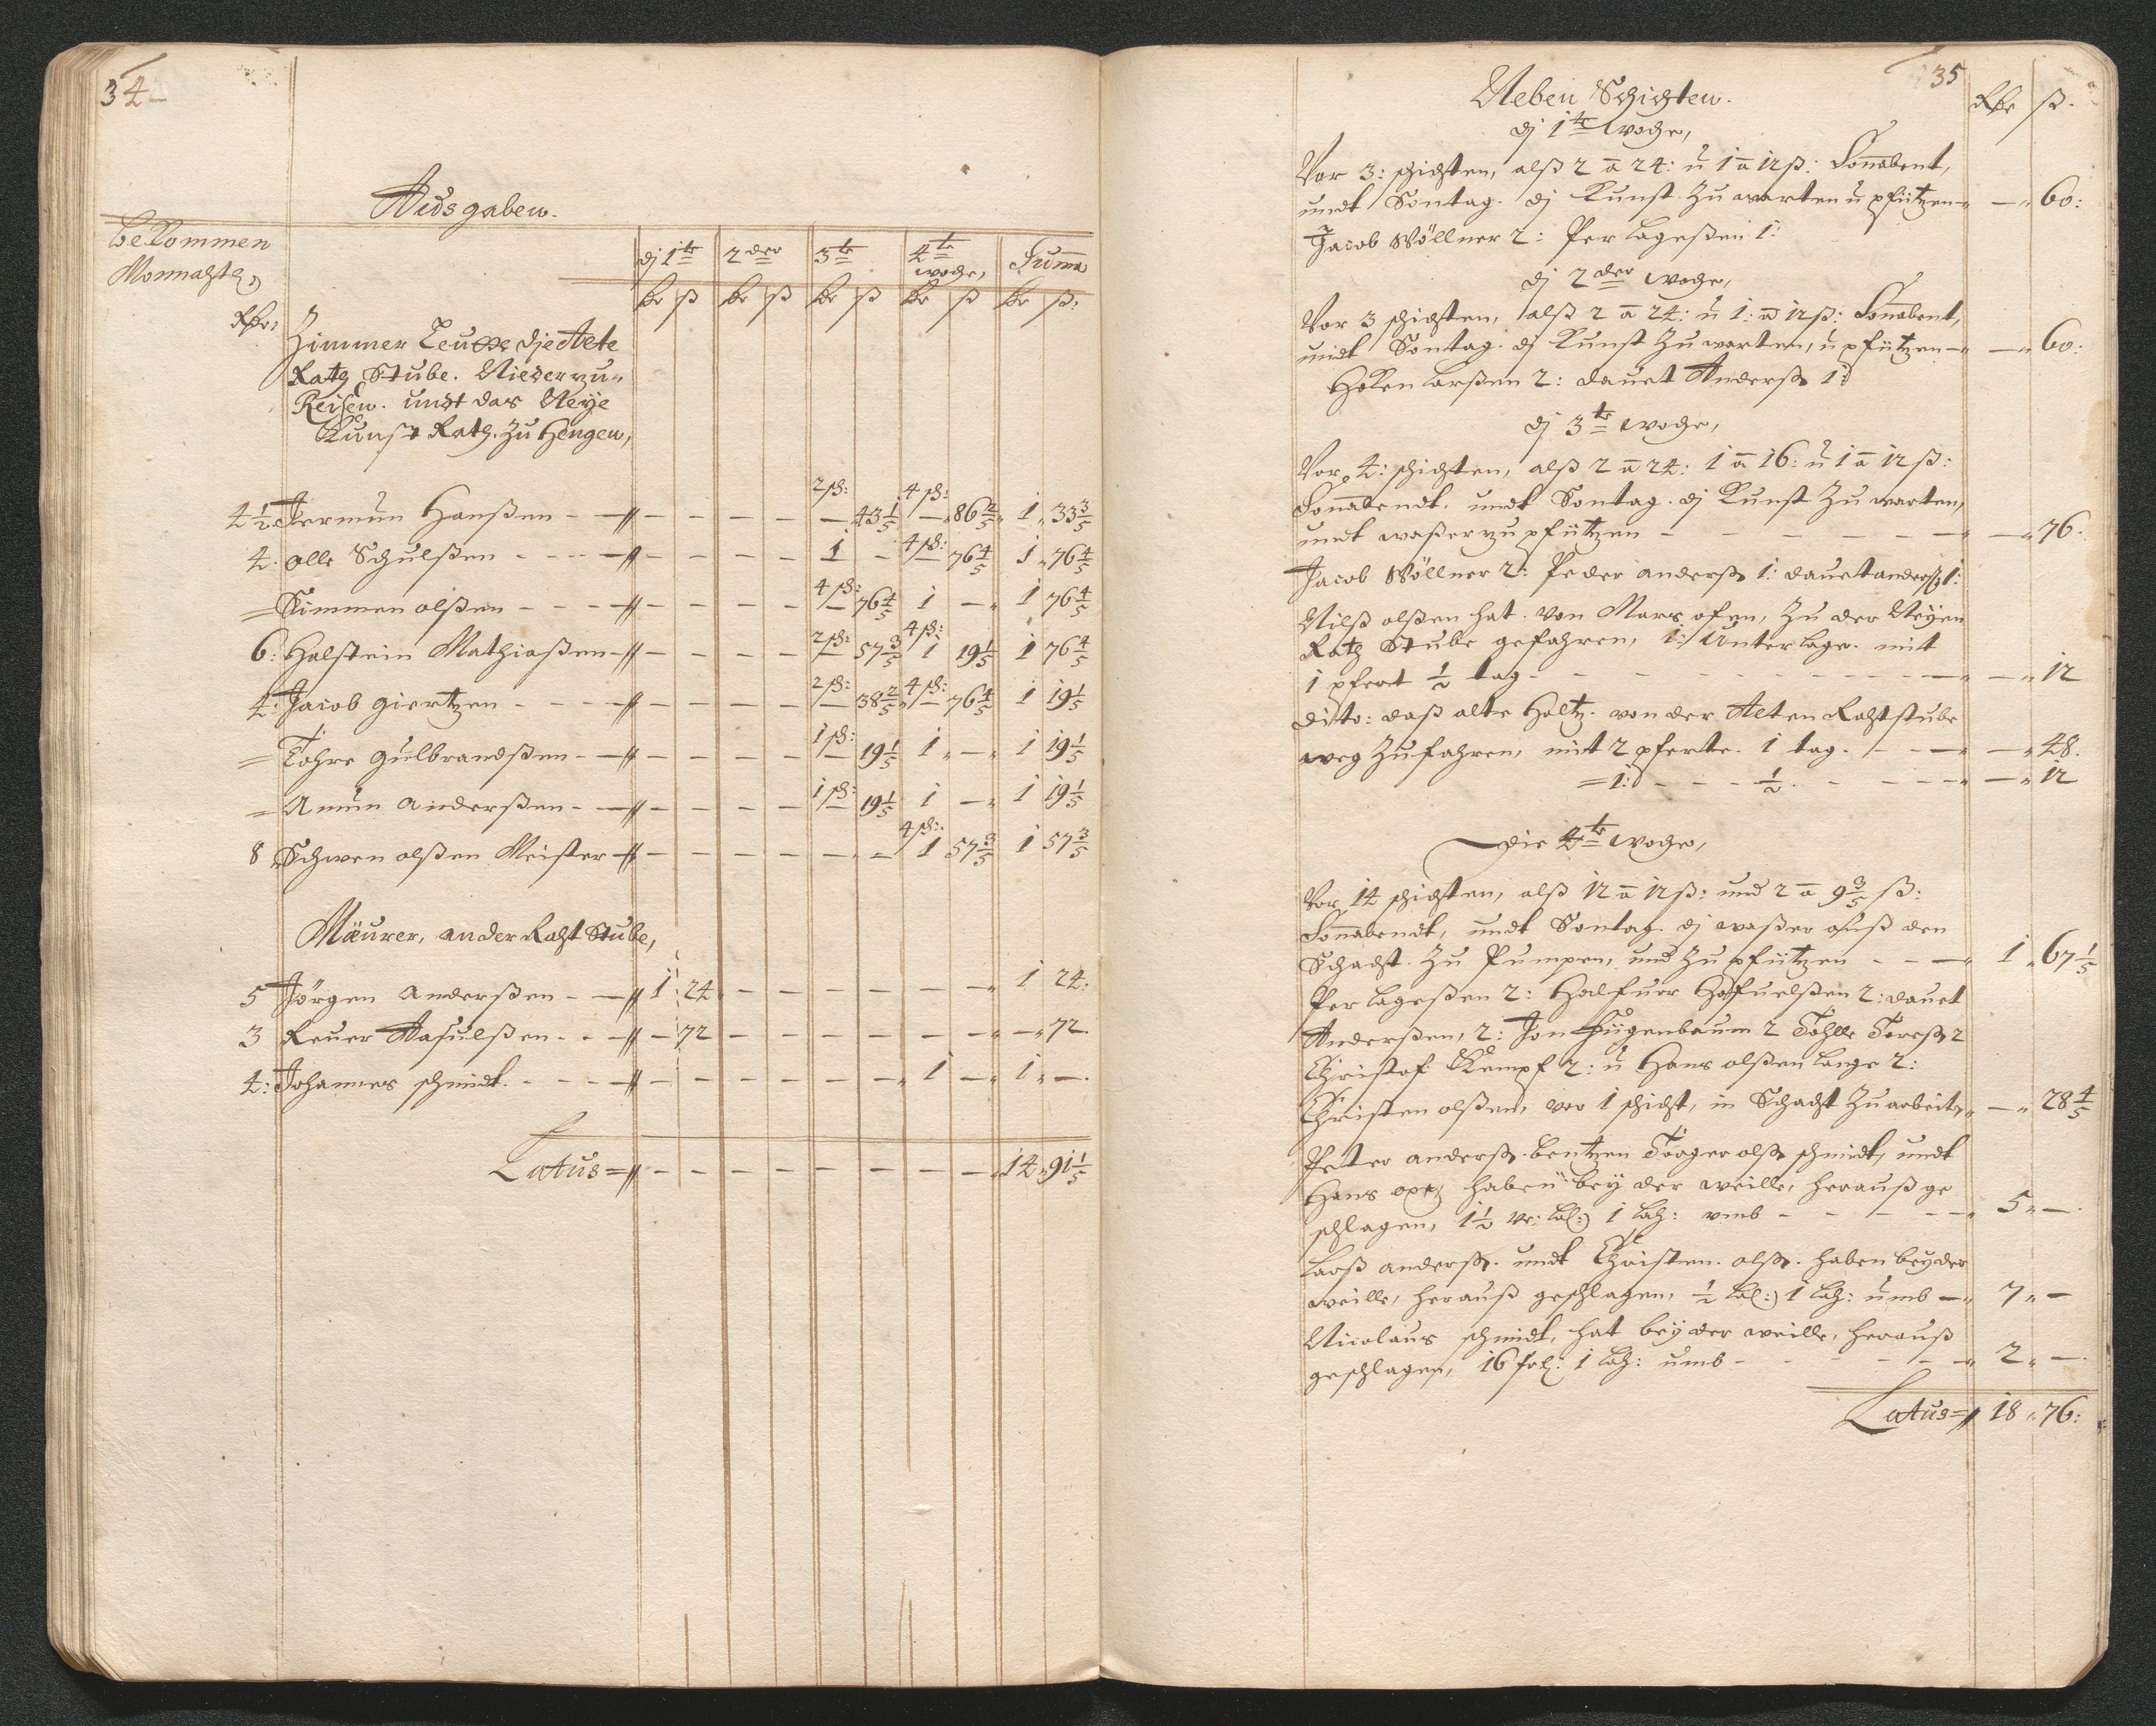 34
Ausgaben.
bekommen
Monnahtl:
dj 1te 2der 3te 4te woge, Suma
Rdr ß Rdr ß Rdr ß Rdr ß Rdr ß:
Rdr:
Zimmer Leutte dje Aete
Ratz Stube. Nieder zu-
Reisen. undt das Neye
Kunst Ratz. zu Hengen,
4½ Jermun Hanßen - - - - - 2 ß: - 43 1/5 4 ß: - 86 2/5 1 33 3/5
4. olle Schulßen - - - - - 1 - 4 ß: - 76 4/5 1 76 4/5
= Simmen olßen - - - - - 4 ß: - 76 4/5 1 - 1 76 4/5
6: Halstein Mathiaßen - - - - 2 ß: - 57 3/5 4 ß: 1 19 1/5 1 76 4/5
4: Jacob giertzen - - - - 2 ß: - 38 2/5 4 ß: - 76 4/5 1 19 1/5
= Tohre gulbrandßen - - - - 1 ß: - 19 1/5 1 - 1 19 1/5
= Amun anderßen - - - - 1 ß: - 19 1/5 1 - 1 19 1/5
8 Schwen olßen Meister - - - - - - 4 ß: 1 57 3/5 1 57 3/5
Mäurer, an der Raht Stube,
5 Jörgen anderßen - 1 24 - - - - - - 1 24:
3 Reuer Aasulßen - - 72 - - - - - - - 72.
4: Johannes schmidt. - - - - - - - 1 - 1 -.
Latus = - - - - - - - - 14 91 1/5
35
Neben Schichten. Rdr ß.
dj 1te woge,
Vor 3: schichten, alß 2 a 24: u 1 a 12 ß: Sonabent,
undt Sontag. dj Kunst zu warten u pfützen - 60:
Jacob Wöllner 2: Per lageßen 1:
dj 2der woge,
Vor 3 schichten, alß 2 a 24: u 1: a 12 ß: Sonabent,
undt Sontag. dj Kunst zu warten, u pfützen - 60:
Hoken larßen 2: dauet Anderß 1:
dj 3te woge,
Vor 4: schichten, alß 2 a 24: 1 a 16: u 1 a 12 ß:
Sonabendt. undt Sontag. dj Kunst zu warten,
undt waßer zu pfützen - - - - - 76.
Jacob Wöllner 2: Peder anderß 1: dauet anderß 1:
Nilß olßen hat. von Mars ofen, zu der Neyen
Ratz Stube gefahren, 1: Unterlage. mit
1 pfert ½ tag - - - - - - 12
dito: daß alte Holtz. von der Alten Rahtstube
weg zu fahren, mit 2 pferte. 1 tag. - - - 48.
= 1: - - - ½. - - - - 12
Die 4te woge,
Vor 14 schichten, alß 12 a 12 ß: und 2 a 9 3/5 ß:
Sonabendt, undt Sontag. dj waßer auß den
Schacht. zu Pumpen, und zu pfützen - - - 1 67 1/5
Per lageßen 2: Halfuer Halfuelßen 2: dauet
Anderßen, 2: Jon Hügenbaum 2 Tohlle Toreß 2
Christof: Kempf 2: u Hans olßen lange 2:
Christen olßen, vor 1 schicht, in Schacht zu arbeiten - 28 4/5
Peter anderß. bentzen Torger olß schmidt, undt
Hans haben bey der weille, herauß ge
schlagen, 1½ 1 lah: umb - - - - 5 -.
Larß anderß. undt Christen. olß. haben bey der
weille, herauß geschlagen, ½ 1 lah: umb - 7 -
Nicolaus schmidt, hat bey der weille, herauß
geschlagen, 16 1 lah: umb - - - - 2 -.
Latus = 18 76: